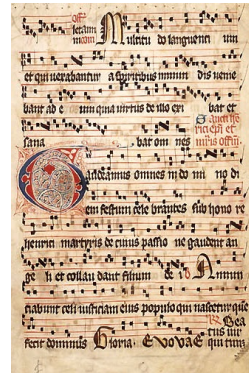 off
letam
m com Multitudo languenti um
et qui vexabantur a spiritibus inmun dis venie
bant ad e um quia virtus de illo exi bat et
sana bat om nes
S. aueti he
rici epi et
mris offm
Gaudeamus omnes in do mi no di
em festum cele brantes sub hono re
henrici martyris de cuius passio ne gaudent an
ge li et collau dant filium de i. v Annun
ciabunt celi iusticiam eius populo qui nascetur que
fecit dominus Gloria. Evovae qui timz
R Bea